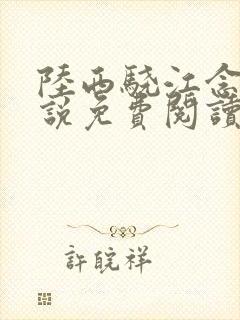 陸西驍江念
說免費閱讀
許皖祥